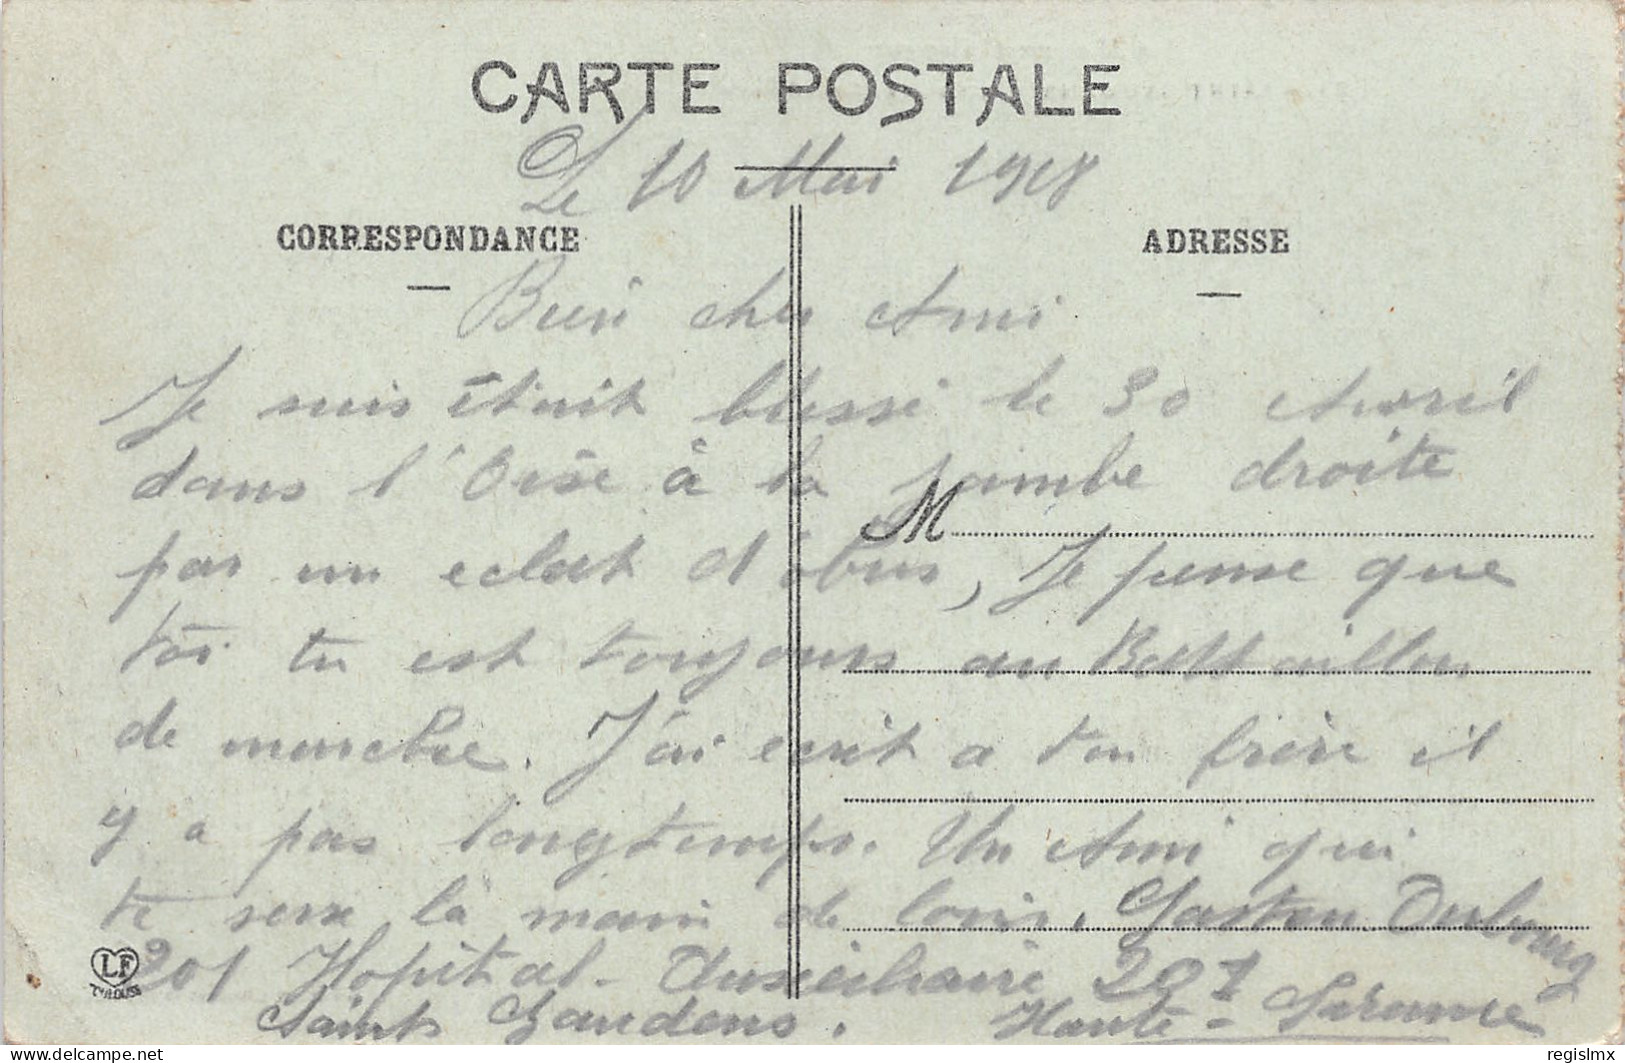 CARTE POSTALE
Le 10 Mai 1918
CORRESPONDANCE
ADRESSE
Bien cher Ami
Je suis était blessé le 30 Avril
dans l'Oise à la jambe droite
M
par un eclat d'obus, Je pense que
toi tu est toujours au Battaillon
de marche. J'ai ecrit a ton frère il
y a pas longtemps. Un Ami qui
te serre la main de loin. Gaston Dubourg
LF
TOULOUSE
201 Hopital - Auxiliaire 201
Saint Gaudens. Haute - Garonne
regislmx